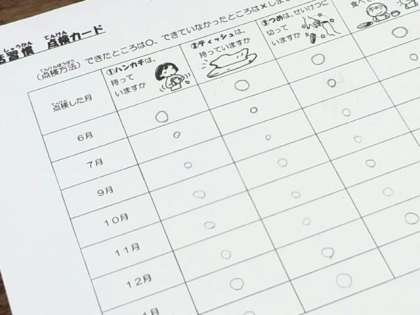 習慣 点検カード
しゅうかん てんけん
(点検方法)できたところは○、できていなかったところは×しま
てんけんほうほう
①ハンカチは、
持って
いますか
②ティッシュは、
持っていますか
③つめは、せいけつに
切って
いますか
食べ
点検した月
てんけん
6月
7月
9月
10月
11月
12月
1月